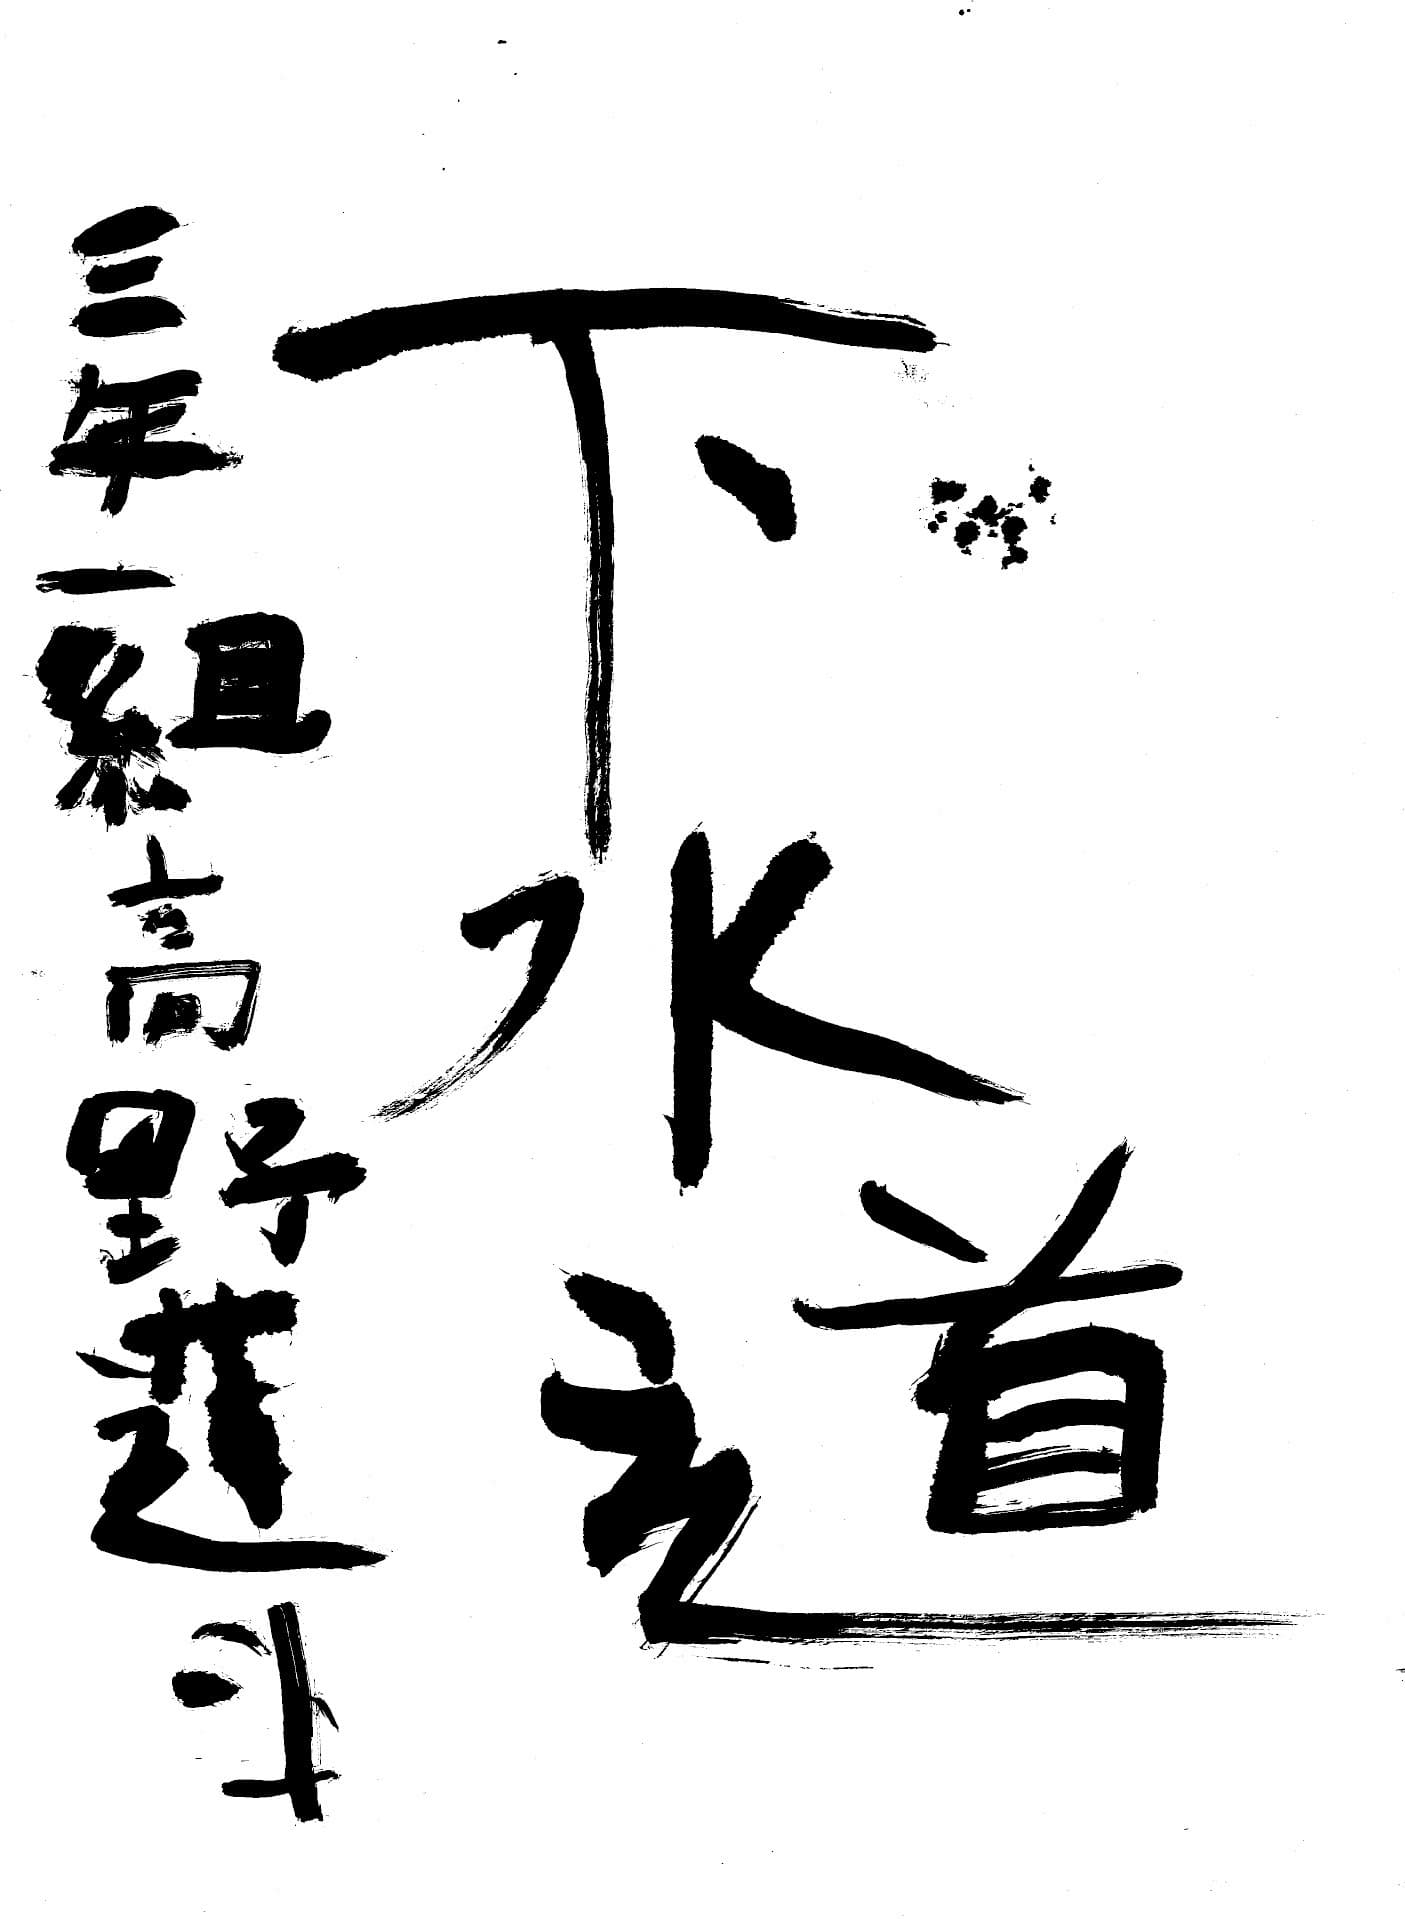 下水道
三年一組高野蓮斗